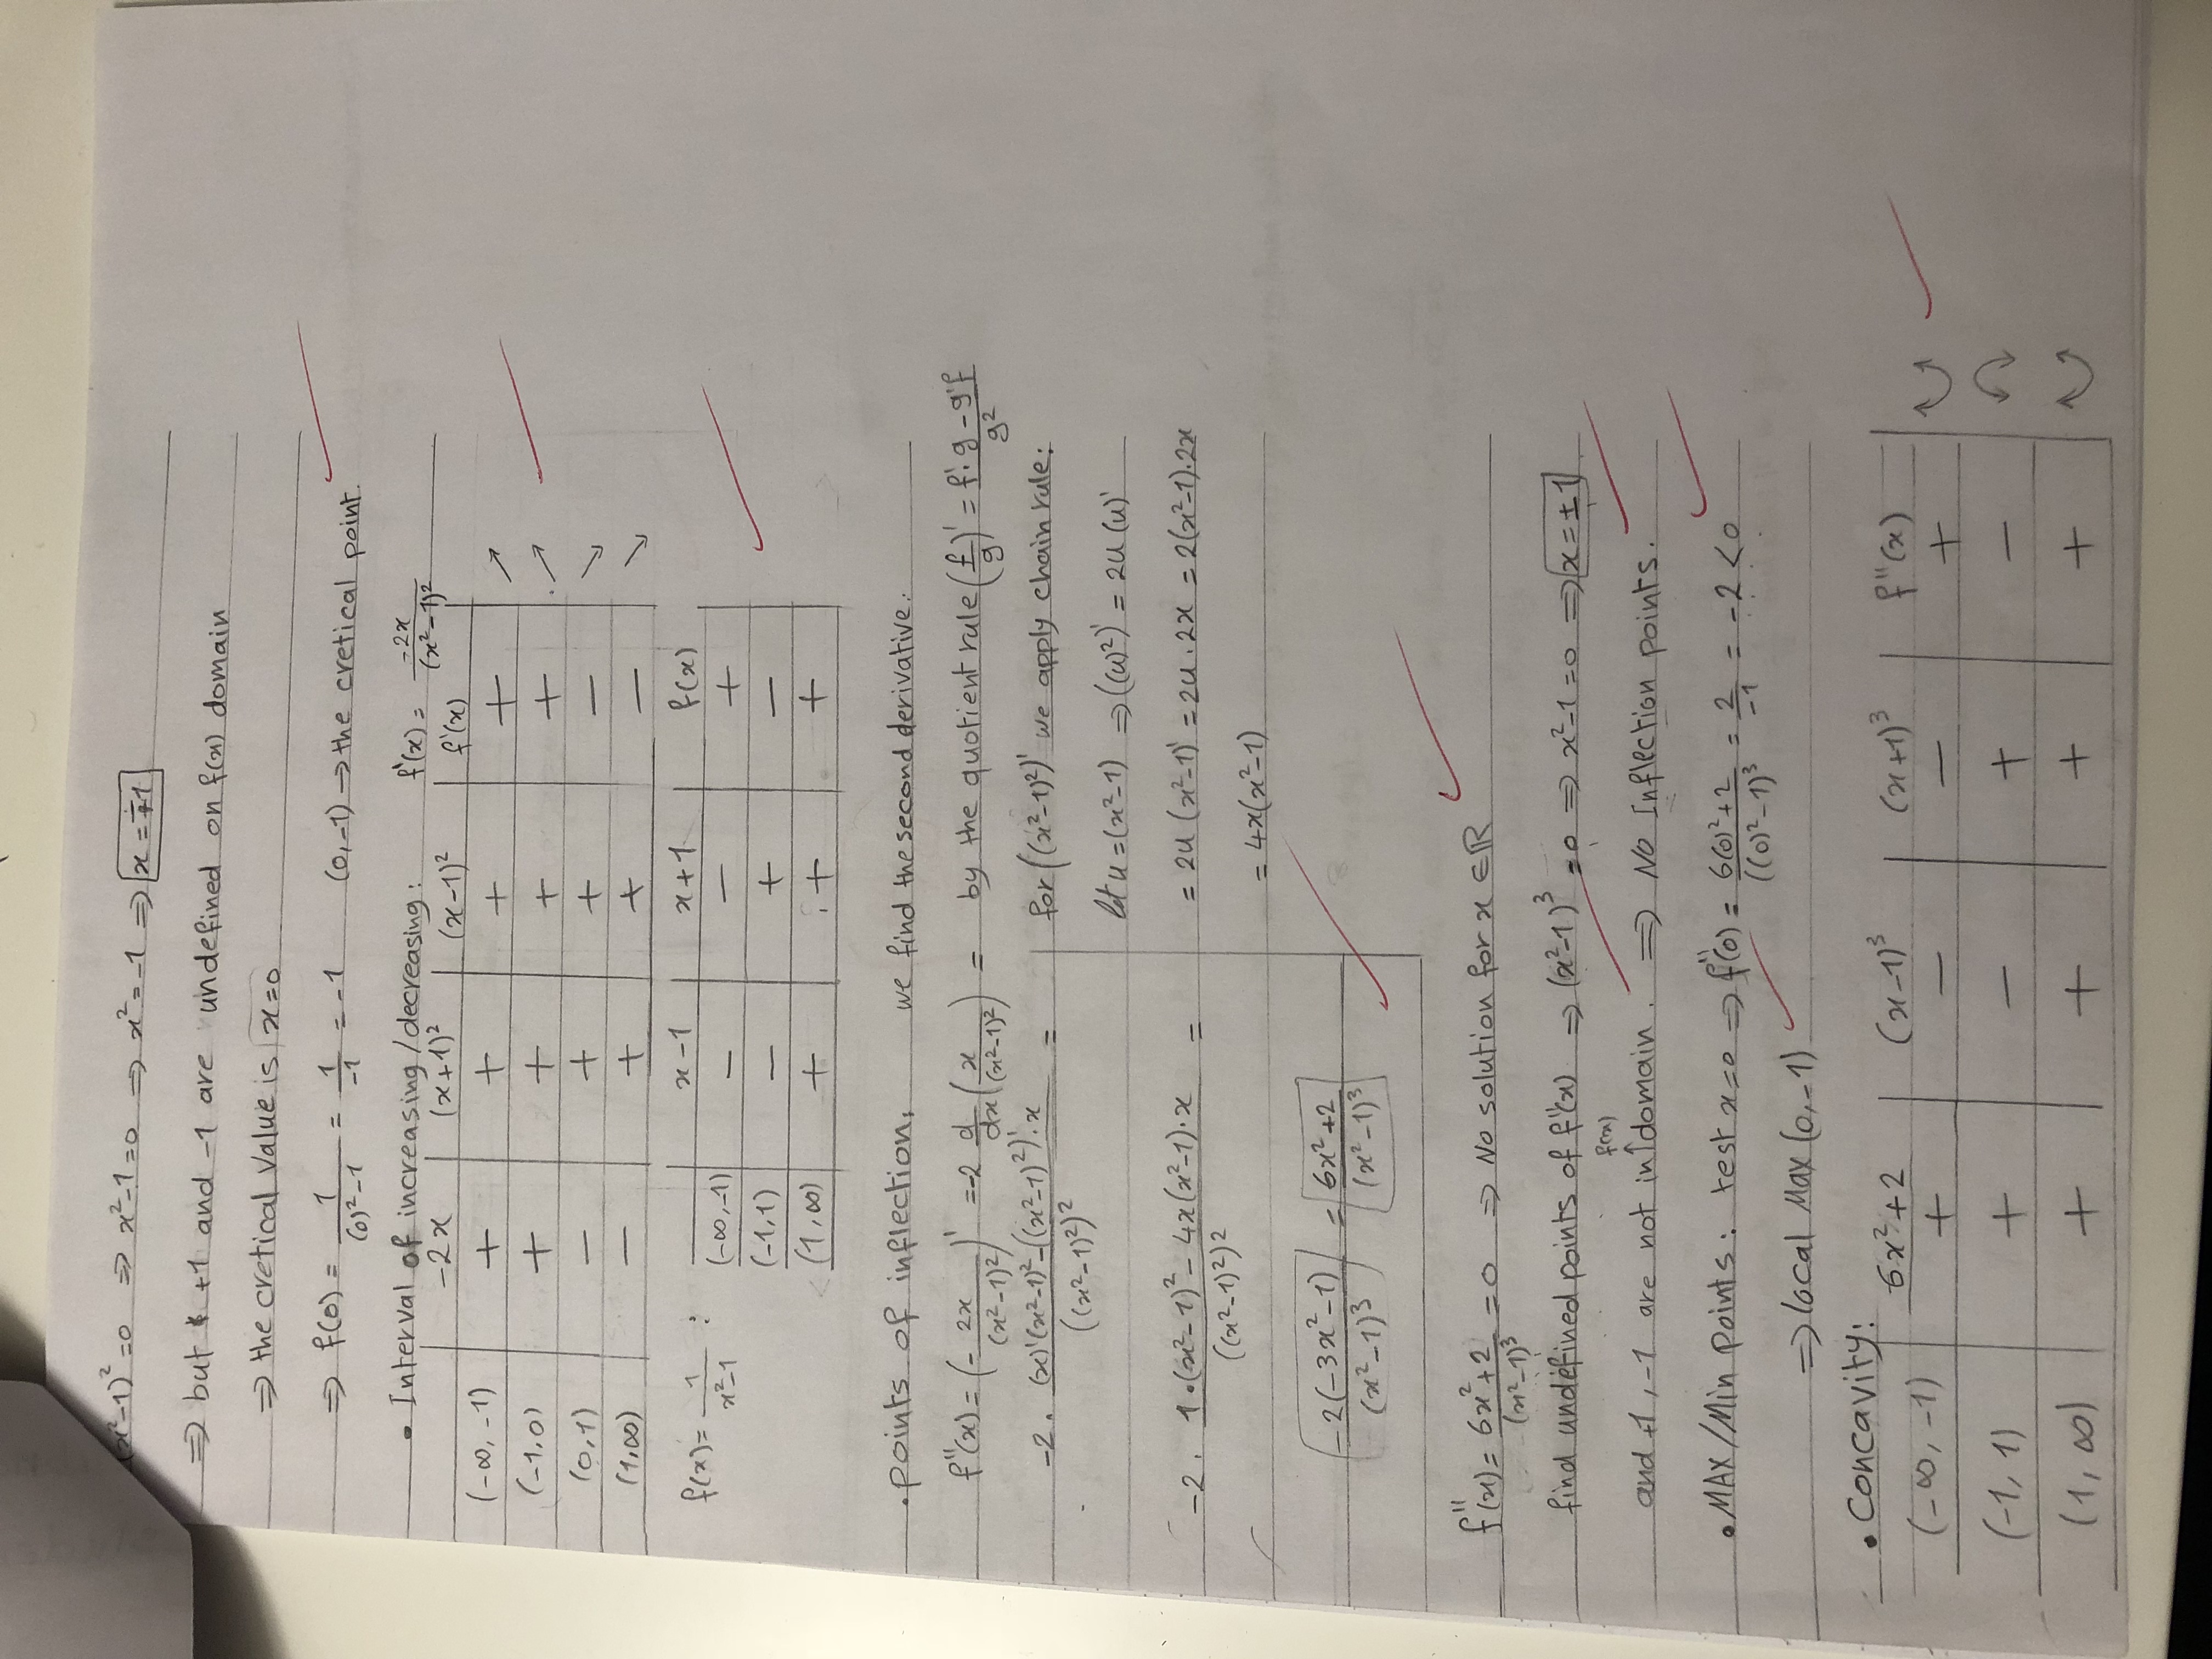 (x²-1)²=0 ⇒ x²-1=0 ⇒ x²=-1 ⇒ x=∓1
⇒ but +1 and -1 are undefined on f(x) domain
⇒ the cretical value is x=0
⇒ f(0) = 1/((0)²-1) = 1/-1 = -1 (0,-1) → the cretical point.
• Interval of increasing/decreasing: f'(x) = -2x/(x²-1)²
-2x (x+1)² (x-1)² f'(x)
(-∞,-1) + + + + ↗
(-1,0) + + + + ↗
(0,1) - + + - ↘
(1,∞) - + + - ↘
f(x) = 1/(x²-1) : x-1 x+1 f(x)
(-∞,-1) - - +
(-1,1) - + -
(1,∞) + + +
• points of inflection, we find the second derivative:
f''(x) = (-2x/(x²-1)²)' = -2 d/dx (x/(x²-1)²) = by the quotient rule (f/g)' = (f'·g - g'f)/g²
-2 · ((x)'(x²-1)² - ((x²-1)²)'·x)/((x²-1)²)² = for ((x²-1)²)' we apply chain rule:
let u=(x²-1) ⇒ ((u)²)' = 2u(u)'
-2 · (1·(x²-1)² - 4x(x²-1)·x)/((x²-1)²)² = = 2u(x²-1)' = 2u·2x = 2(x²-1)·2x
= 4x(x²-1)
-2(-3x²-1)/(x²-1)³ = (6x²+2)/(x²-1)³
f''(x) = (6x²+2)/(x²-1)³ = 0 ⇒ No solution for x ∈ ℝ
find undefined points of f''(x) ⇒ (x²-1)³ = 0 ⇒ x²-1=0 ⇒ x=±1
and +1,-1 are not in f(x) domain. ⇒ No Inflection points.
• MAX/Min points: test x=0 ⇒ f''(0) = (6(0)²+2)/((0)²-1)³ = 2/-1 = -2 < 0
⇒ local Max (0,-1)
• Concavity: 6x²+2 (x-1)³ (x+1)³ f''(x)
(-∞,-1) + - - +
(-1,1) + - + -
(1,∞) + + + +